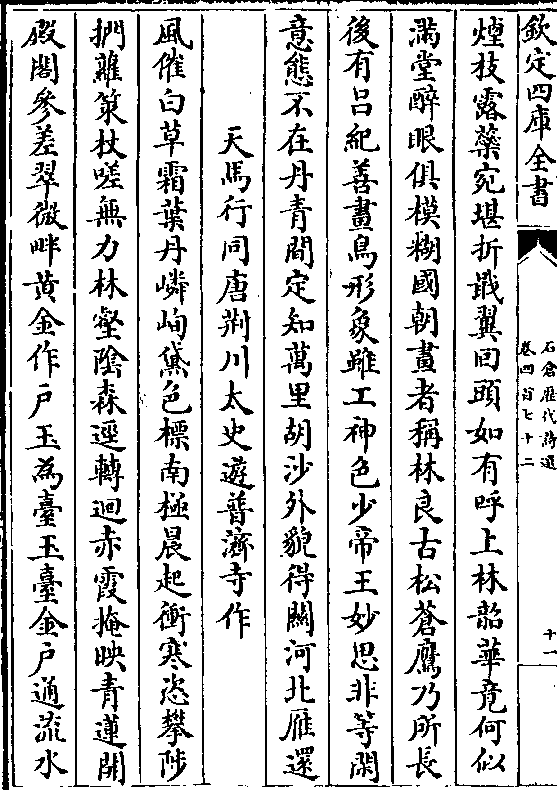 欽定四庫全書
石倉歴代詩選
卷四百七十二
十一
煙枝露蘂宛堪折戢翼回頭如有呼上林韶華竟何似
滿堂醉眼俱模糊國朝畫者稱林良古松蒼鷹乃所長
後有吕紀善畫鳥形象雖工神色少帝王妙思非等閑
意態不在丹青間定知萬里胡沙外貌得關河北雁還
天馬行同唐荆川太史遊普濟寺作
風催白草霜葉丹嶙峋黛色標南極晨起衝寒恣攀陟
捫蘿策杖嗟無力林壑陰森逕轉迴赤霞掩映青蓮開
殿閣參差翠微畔黄金作戶玉為臺玉臺金戶通流水